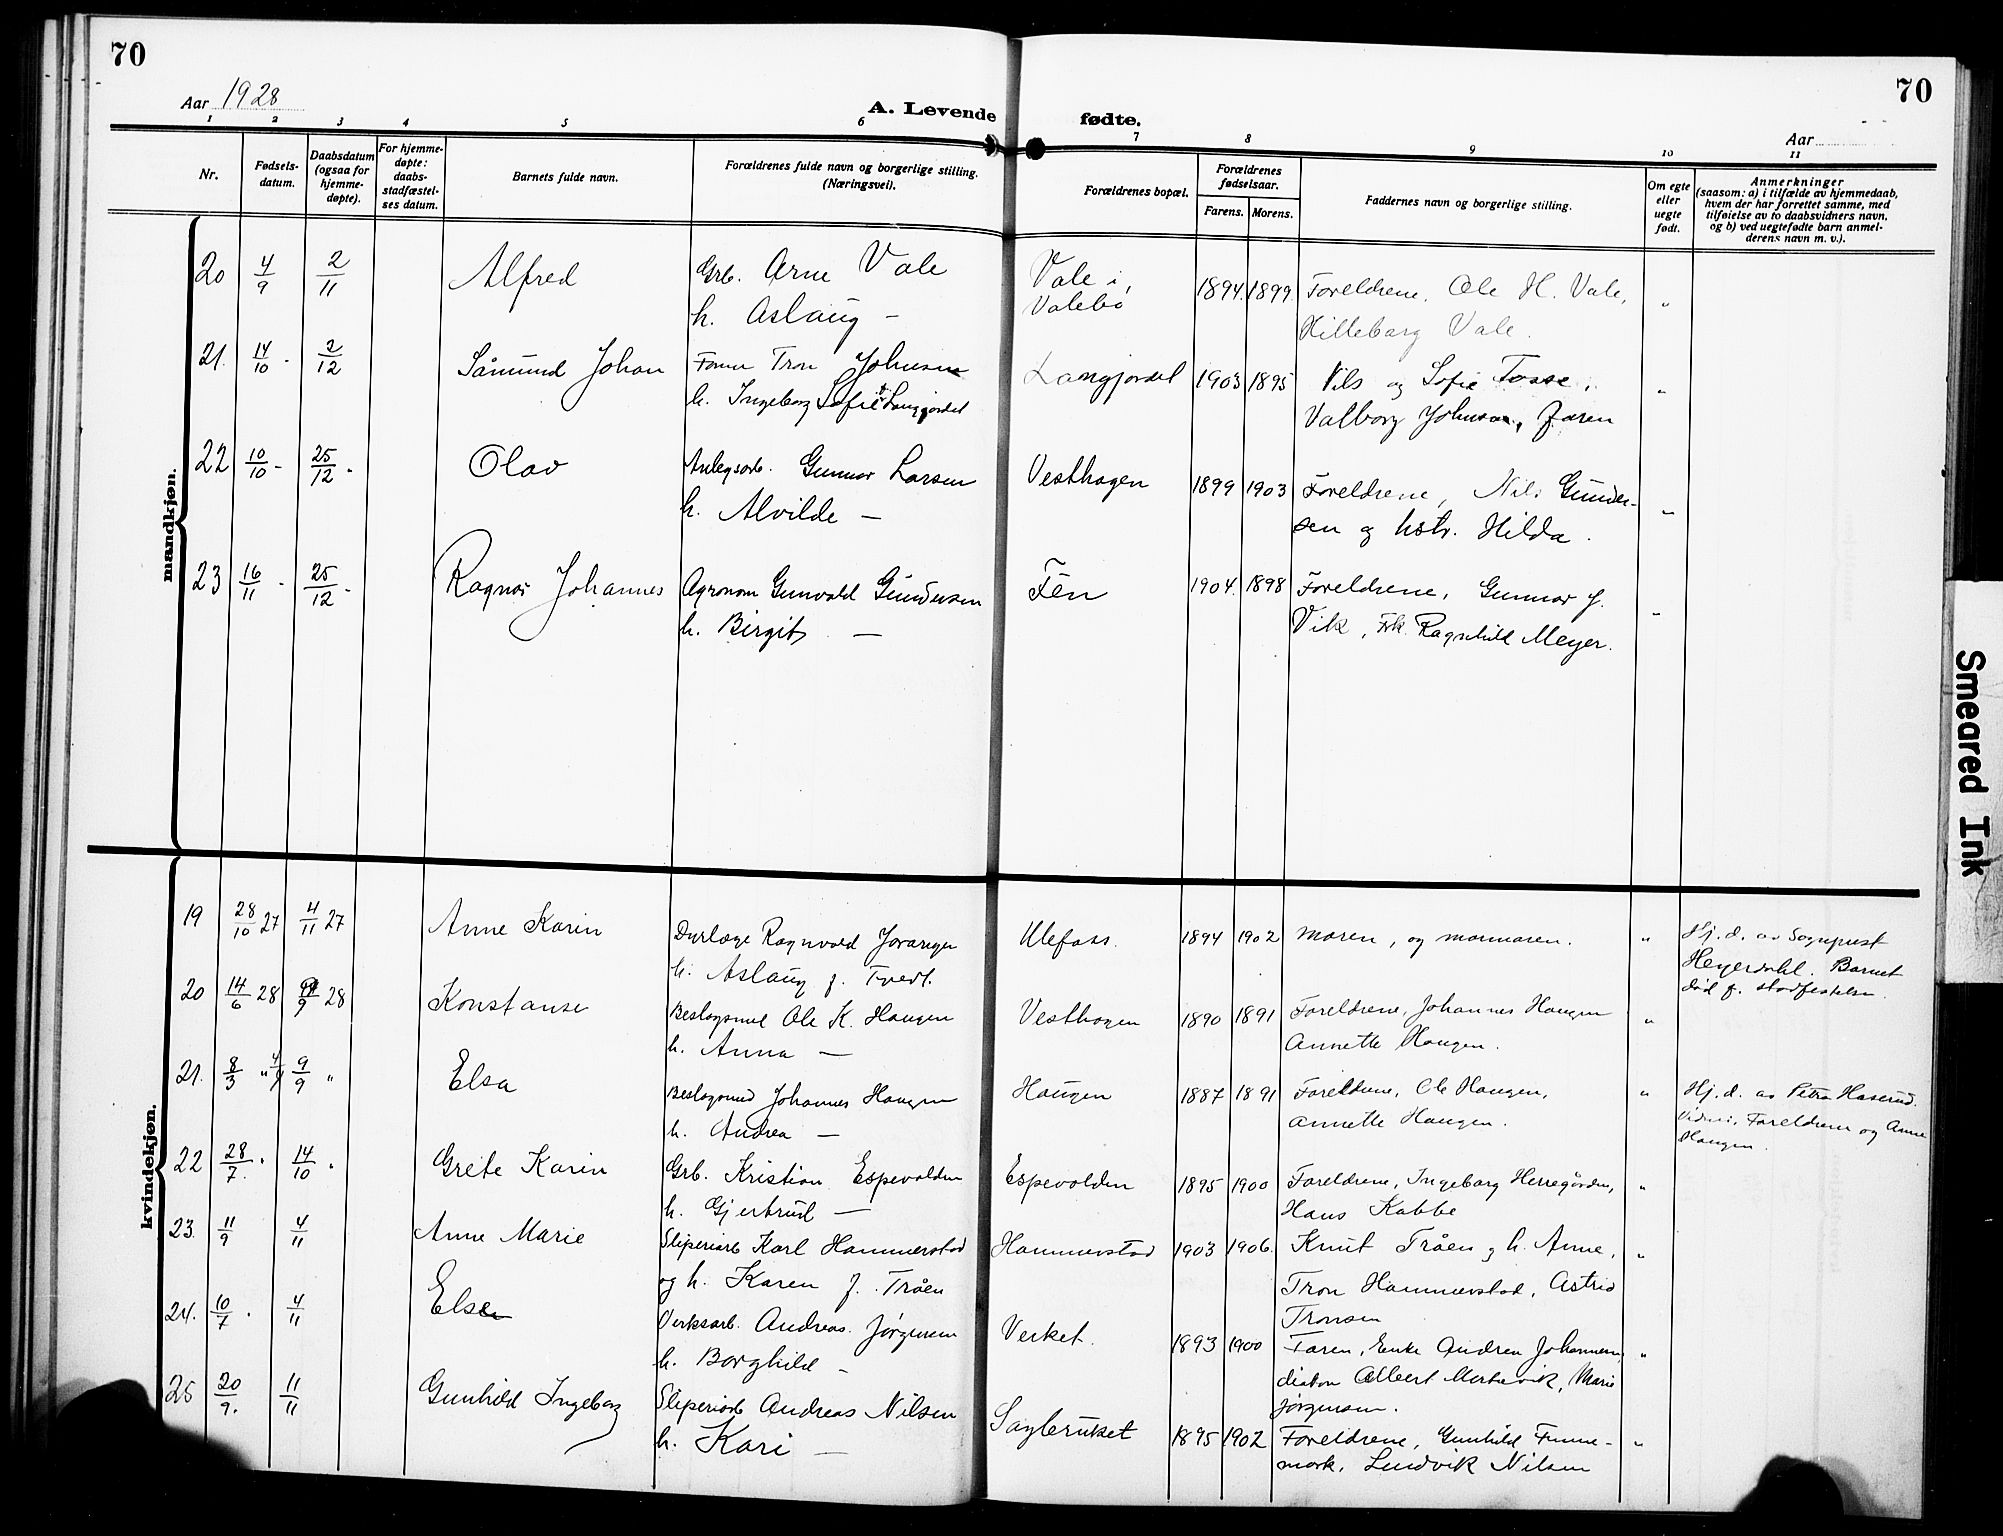 70
70
Aar 1928
A. Levende
fødte.
Aar
1 2 3 4 5 6 7 8 9 10 11
Nr.
Fødsels-
datum.
Daabsdatum
(ogsaa for
hjemme-
døpte).
For hjemme-
døpte:
daabs-
stadfæstel-
ses datum.
Barnets fulde navn.
Forældrenes fulde navn og borgerlige stilling.
(Næringsvei).
Forældrenes bopæl.
Forældrenes
fødselsaar.
Farens. Morens.
Faddernes navn og borgerlige stilling.
Om egte
eller
uegte
født.
Anmerkninger
(saasom: a) i tilfælde av hjemmedaab,
hvem der har forrettet samme, med
tilføielse av to daabsvidners navn,
og b) ved uegtefødte barn anmel-
derens navn m. v.).
mandkjøn.
20 4/9 2/11 Alfred Grb. Arne Vale Vale i, 1894. 1899. Foreldrene, Ole H. Vale, "
h. Aslaug — Valebø Hilleborg Vale.
21. 14/10 - 2/12 Såmund Johan Former Tron Johnsen Langjordet 1903 1895 Nils og Sofie Tosse, "
h. Ingeborg Sofie Langjordet Valborg Johnsen, Faren
22 10/10 - 25/12 - Olav Anlegsarb. Gunnar Larsen Vesthagen 1899 1903 Foreldrene, Nils Gunder- "
h. Alvilde — sen og hstr. Hilda.
23 16/11 - 25/12 - Ragnar Johannes Agronom Gunvald Gundersen Fèn 1904. 1898 Foreldrene, Gunnar J. "
h. Birgit — Vik, Frk. Ragnhild Meyer.
kvindekjøn.
19 28/10 27 4/11 27 Anne Karin Dyrlæge Ragnvald Jvaranger Ulefoss. 1894 1902 moren, og mormoren. " Hj. d. av Sogneprest
h. Aslaug f. Tvedt. Heyerdahl. Barnet
død f. stadfestelse.
20 14/6 28 9/9 28 Konstanse Beslagsmed Ole K. Haugen Vesthagen 1890 1891 Foreldrene, Johannes Haugen "
h. Anna — Annette Haugen.
21. 8/3 " 4/9 9/9 " Elsa Beslagsmed Johannes Haugen Haugen 1887 1891 Foreldrene, Ole Haugen, " Hj. d. av Petra Haserud.
h. Andrea — Annette Haugen. Vidner, Foreldrene og Anne
Haugen.
22 28/7. " 14/10 " Grete Karin Grb. Kristian Espevolden Espevolden 1895 1900 Foreldrene, Ingeborg Herregården, "
h. Gjertrud — Hans Kabbe
23. 11/9 4/11 Anne Marie Sliperiarb Karl Hammerstad Hammerstad 1903 1906. Knut Tråen og h. Anne, "
og h. Karen f. Tråen Tron Hammerstad, Astrid
Tronsen
24. 10/7 " 4/11 Else Verksarb. Andreas Jørgensen Verket. 1893 1900 Faren, Enke Andrea Johannesen, "
h. Borghild — diakon Albert Mortavik, Marie
Jørgensen.
25 20/9. 11/11 Gunhild Ingeborg Sliperiarb Andreas Nilsen Sagbruket 1895 1902 Foreldrene, Gunhild Finne- "
h. Kari — mork, Ludvik Nilsen
Smeared Ink